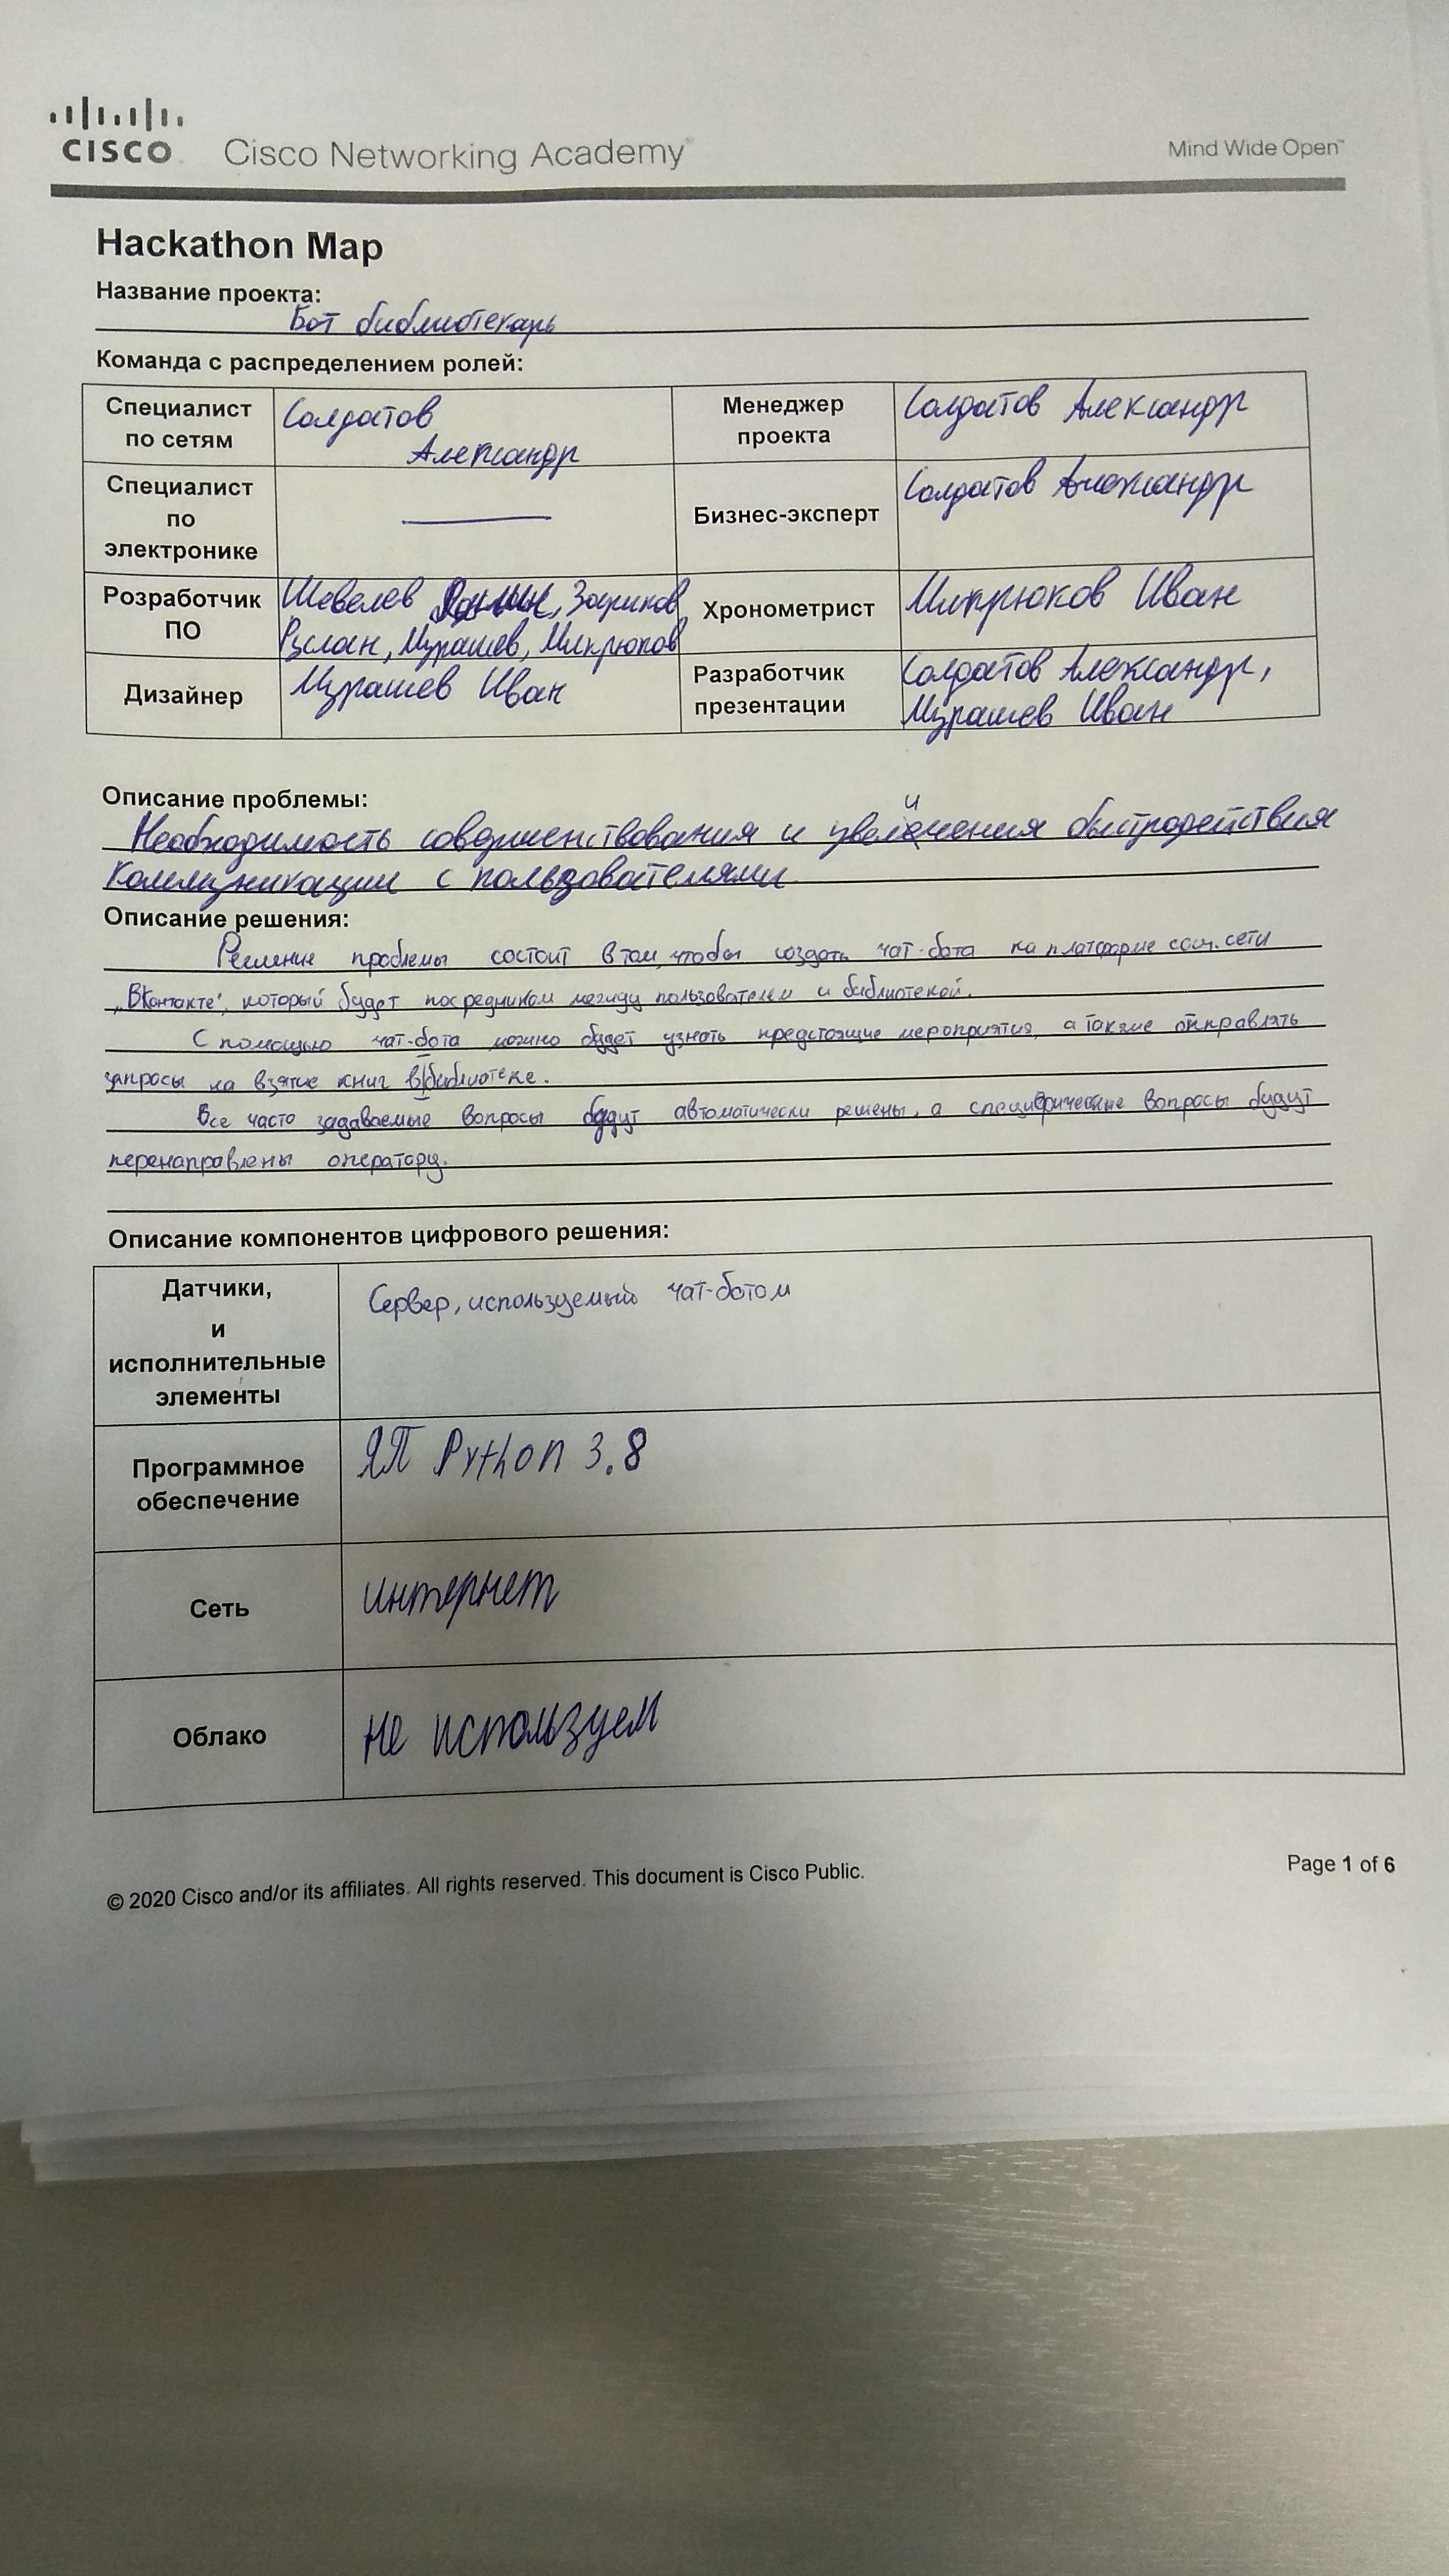 CISCO Cisco Networking Academy Mind Wide Open™
Hackathon Map
Название проекта:
Бот библиотекарь
Команда с распределением ролей:
Специалист по сетям
Солдатов
Александр
Менеджер проекта
Солдатов Александр
Специалист по электронике
Бизнес-эксперт
Солдатов Александр
Розработчик ПО
Шевелев
Руслан, Мурашев, Микрюков
Хронометрист
Микрюков Иван
Дизайнер
Мурашев Иван
Разработчик презентации
Солдатов Александр,
Мурашев Иван
Описание проблемы:
Необходимость совершенствования и увеличения быстродействия
коммуникации с пользователями.
Описание решения:
Решение проблемы состоит в том, чтобы создать чат-бота на платформе соц. сети
„ВКонтакте", который будет посредником между пользователем и библиотекой.
С помощью чат-бота можно будет узнать предстоящие мероприятия, а также отправлять
запросы на взятие книг в библиотеке.
Все часто задаваемые вопросы будут автоматически решены, а специфические вопросы будут
перенаправлены оператору.
Описание компонентов цифрового решения:
Датчики,
и
исполнительные
элементы
Сервер, используемый чат-ботом
Программное
обеспечение
ЯП Python 3.8
Сеть
интернет
Облако
не используем
© 2020 Cisco and/or its affiliates. All rights reserved. This document is Cisco Public.
Page 1 of 6